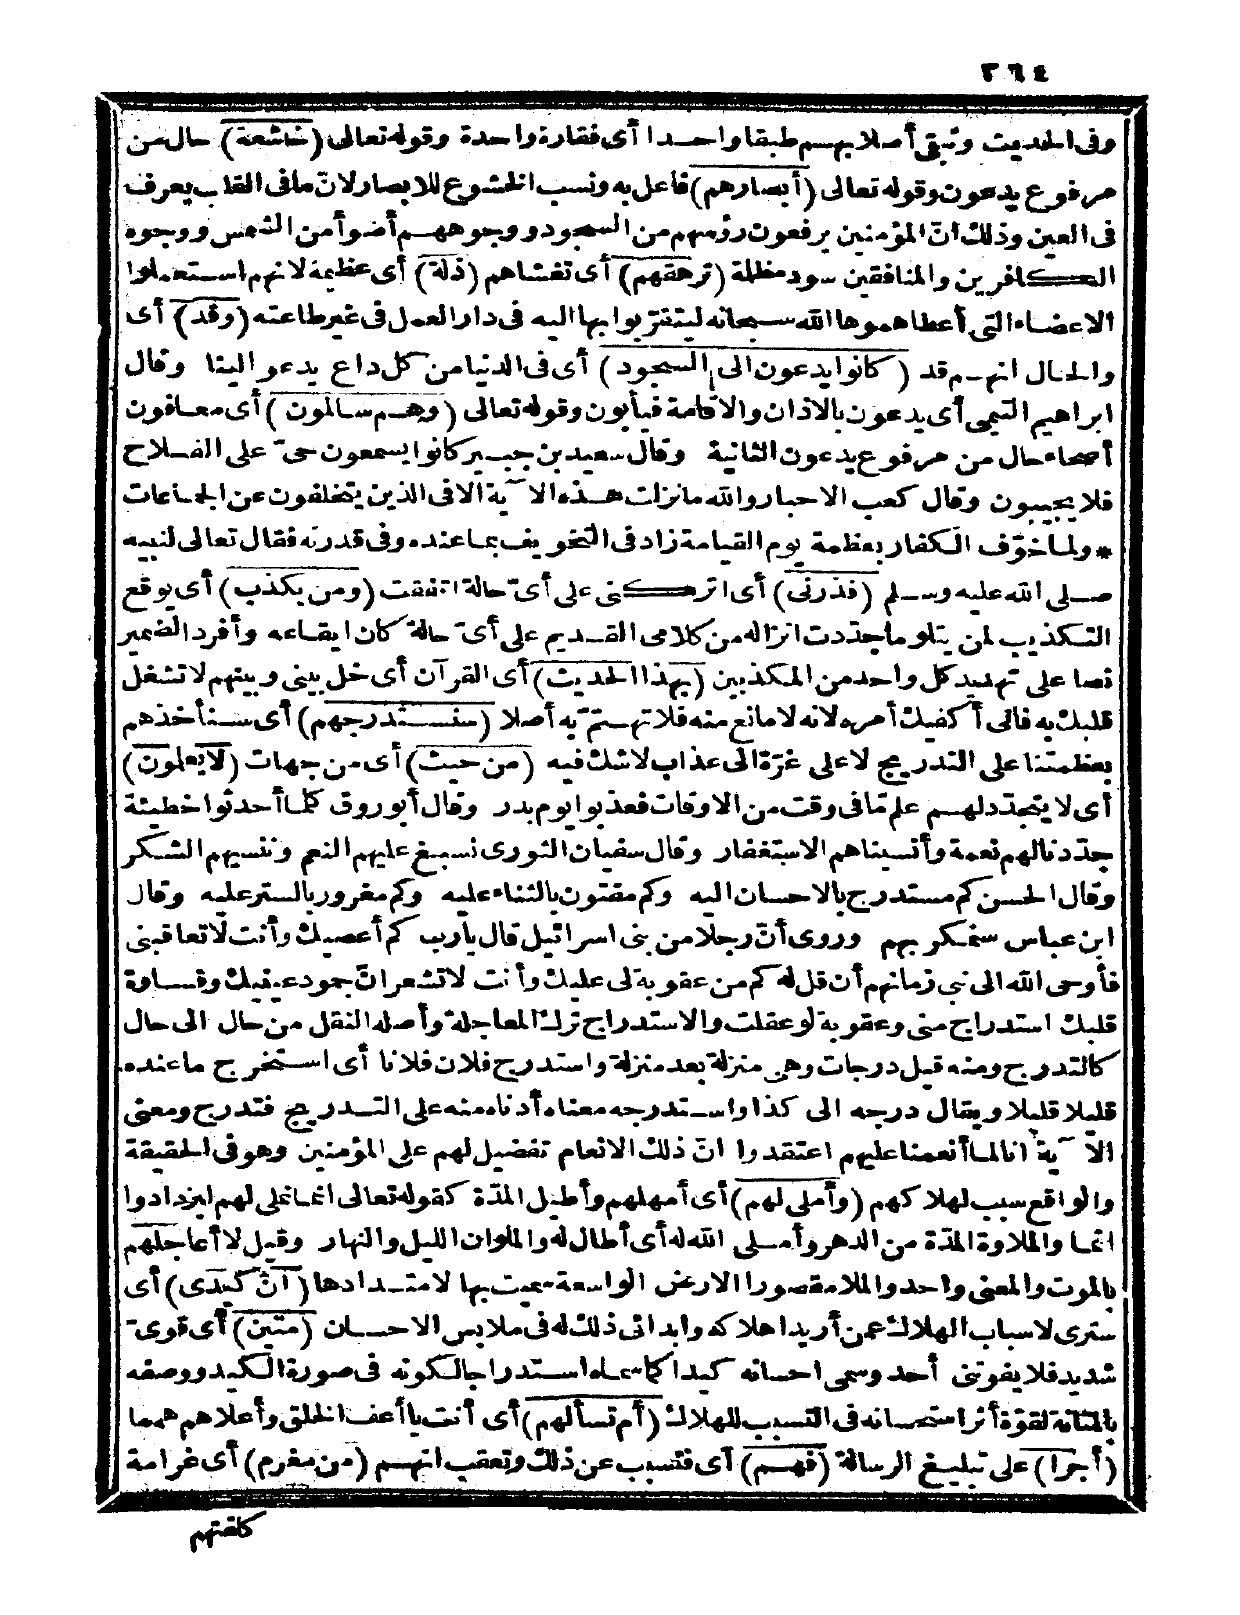 ٣٦٤
وفى الحديث وتبقى أصلابهم طبقا واحدا أى فقارة واحدة وقوله تعالى (خاشعة) حال من
مرفوع يدعون وقوله تعالى (أبصارهم) فاعل به ونسب الخشوع للابصار لانّ ما فى القلب يعرف
فى العين وذلك انّ المؤمنين يرفعون رؤسهم من السجود ووجوههم أضوأ من الشمس ووجوه
الكافرين والمنافقين سود مظلمة (ترهقهم) أى تغشاهم (ذلة) أى عظيمة لانهم استعملوا
الاعضاء التى أعطاهموها الله سبحانه ليتقرّبوا بها اليه فى دار العمل فى غير طاعته (وقد) أى
والحال انهم قد (كانوا يدعون الى السجود) أى فى الدنيا من كل داع يدعو الينا وقال
ابراهيم التيمى أى يدعون بالاذان والاقامة فيأبون وقوله تعالى (وهم سالمون) أى معافون
أصحاء حال من مرفوع يدعون الثانية وقال سعيد بن جبير كانوا يسمعون حىّ على الفلاح
فلا يجيبون وقال كعب الاحبار والله ما نزلت هذه الآية الا فى الذين يتخلفون عن الجماعات
* ولما خوّف الكفار بعظمة يوم القيامة زاد فى التخويف بما عنده وفى قدرته فقال تعالى لنبيه
صلى الله عليه وسلم (فذرنى) أى اتركنى على أىّ حالة اتفقت (ومن يكذب) أى يوقع
التكذيب لمن يتلو ما جدّدت انزاله من كلامى القديم على أىّ حالة كان ايقاعه وأفرد الضمير
نصا على تهديد كل واحد من المكذبين (بهذا الحديث) أى القرآن أى خل بينى وبينهم لا تشغل
قلبك به فانى أكفيك أمره لانه لا مانع منه فلا تهتمّ به أصلا (سنستدرجهم) أى سنأخذهم
بعظمتنا على التدريج لا على غرّة الى عذاب لا شك فيه (من حيث) أى من جهات (لا يعلمون)
أى لا يتجدّد لهم علم مّا فى وقت من الاوقات فعذبوا يوم بدر وقال أبو روق كلما أحدثوا خطيئة
جدّدنا لهم نعمة وأنسيناهم الاستغفار وقال سفيان الثورى نسبغ عليهم النعم وننسيهم الشكر
وقال الحسن كم مستدرج بالاحسان اليه وكم مفتون بالثناء عليه وكم مغرور بالستر عليه وقال
ابن عباس سنمكر بهم وروى أنّ رجلا من بنى اسرائيل قال يا رب كم أعصيك وأنت لا تعاقبنى
فأوحى الله الى نبى زمانهم أن قل له كم من عقوبة لى عليك وأنت لا تشعر انّ جمود عينيك وقساوة
قلبك استدراج منى وعقوبة لو عقلت والاستدراج ترك المعاجلة وأصله النقل من حال الى حال
كالتدرج ومنه قيل درجات وهى منزلة بعد منزلة واستدرج فلان فلانا أى استخرج ما عنده
قليلا قليلا ويقال درجه الى كذا واستدرجه معناه أدناه منه على التدريج فتدرج ومعنى
الآية انا لما أنعمنا عليهم اعتقدوا انّ ذلك الانعام تفضيل لهم على المؤمنين وهو فى الحقيقة
والواقع سبب لهلاكهم (وأملى لهم) أى أمهلهم وأطيل المدّة كقوله تعالى انما نملى لهم ليزدادوا
اثما والملاوة المدّة من الدهر وأملى الله له أى أطال له والملوان الليل والنهار وقيل لا أعاجلهم
بالموت والمعنى واحد والملا مقصورا الارض الواسعة سميت بها لامتدادها (انّ كيدى) أى
سترى لاسباب الهلاك عمن أريد اهلاكه وابدائى ذلك له فى ملابس الاحسان (متين) أى قوىّ
شديد فلا يفوتنى أحد وسمى احسانه كيدا كما سماه استدراجا لكونه فى صورة الكيد ووصفه
بالمتانة لقوّة أثر استحسانه فى التسبب للهلاك (أم تسألهم) أى أنت يا أعف الخلق وأعلاهم همما
(أجرا) على تبليغ الرسالة (فهم) أى فتسبب عن ذلك وتعقب انهم (من مغرم) أى غرامة
كلفتهم